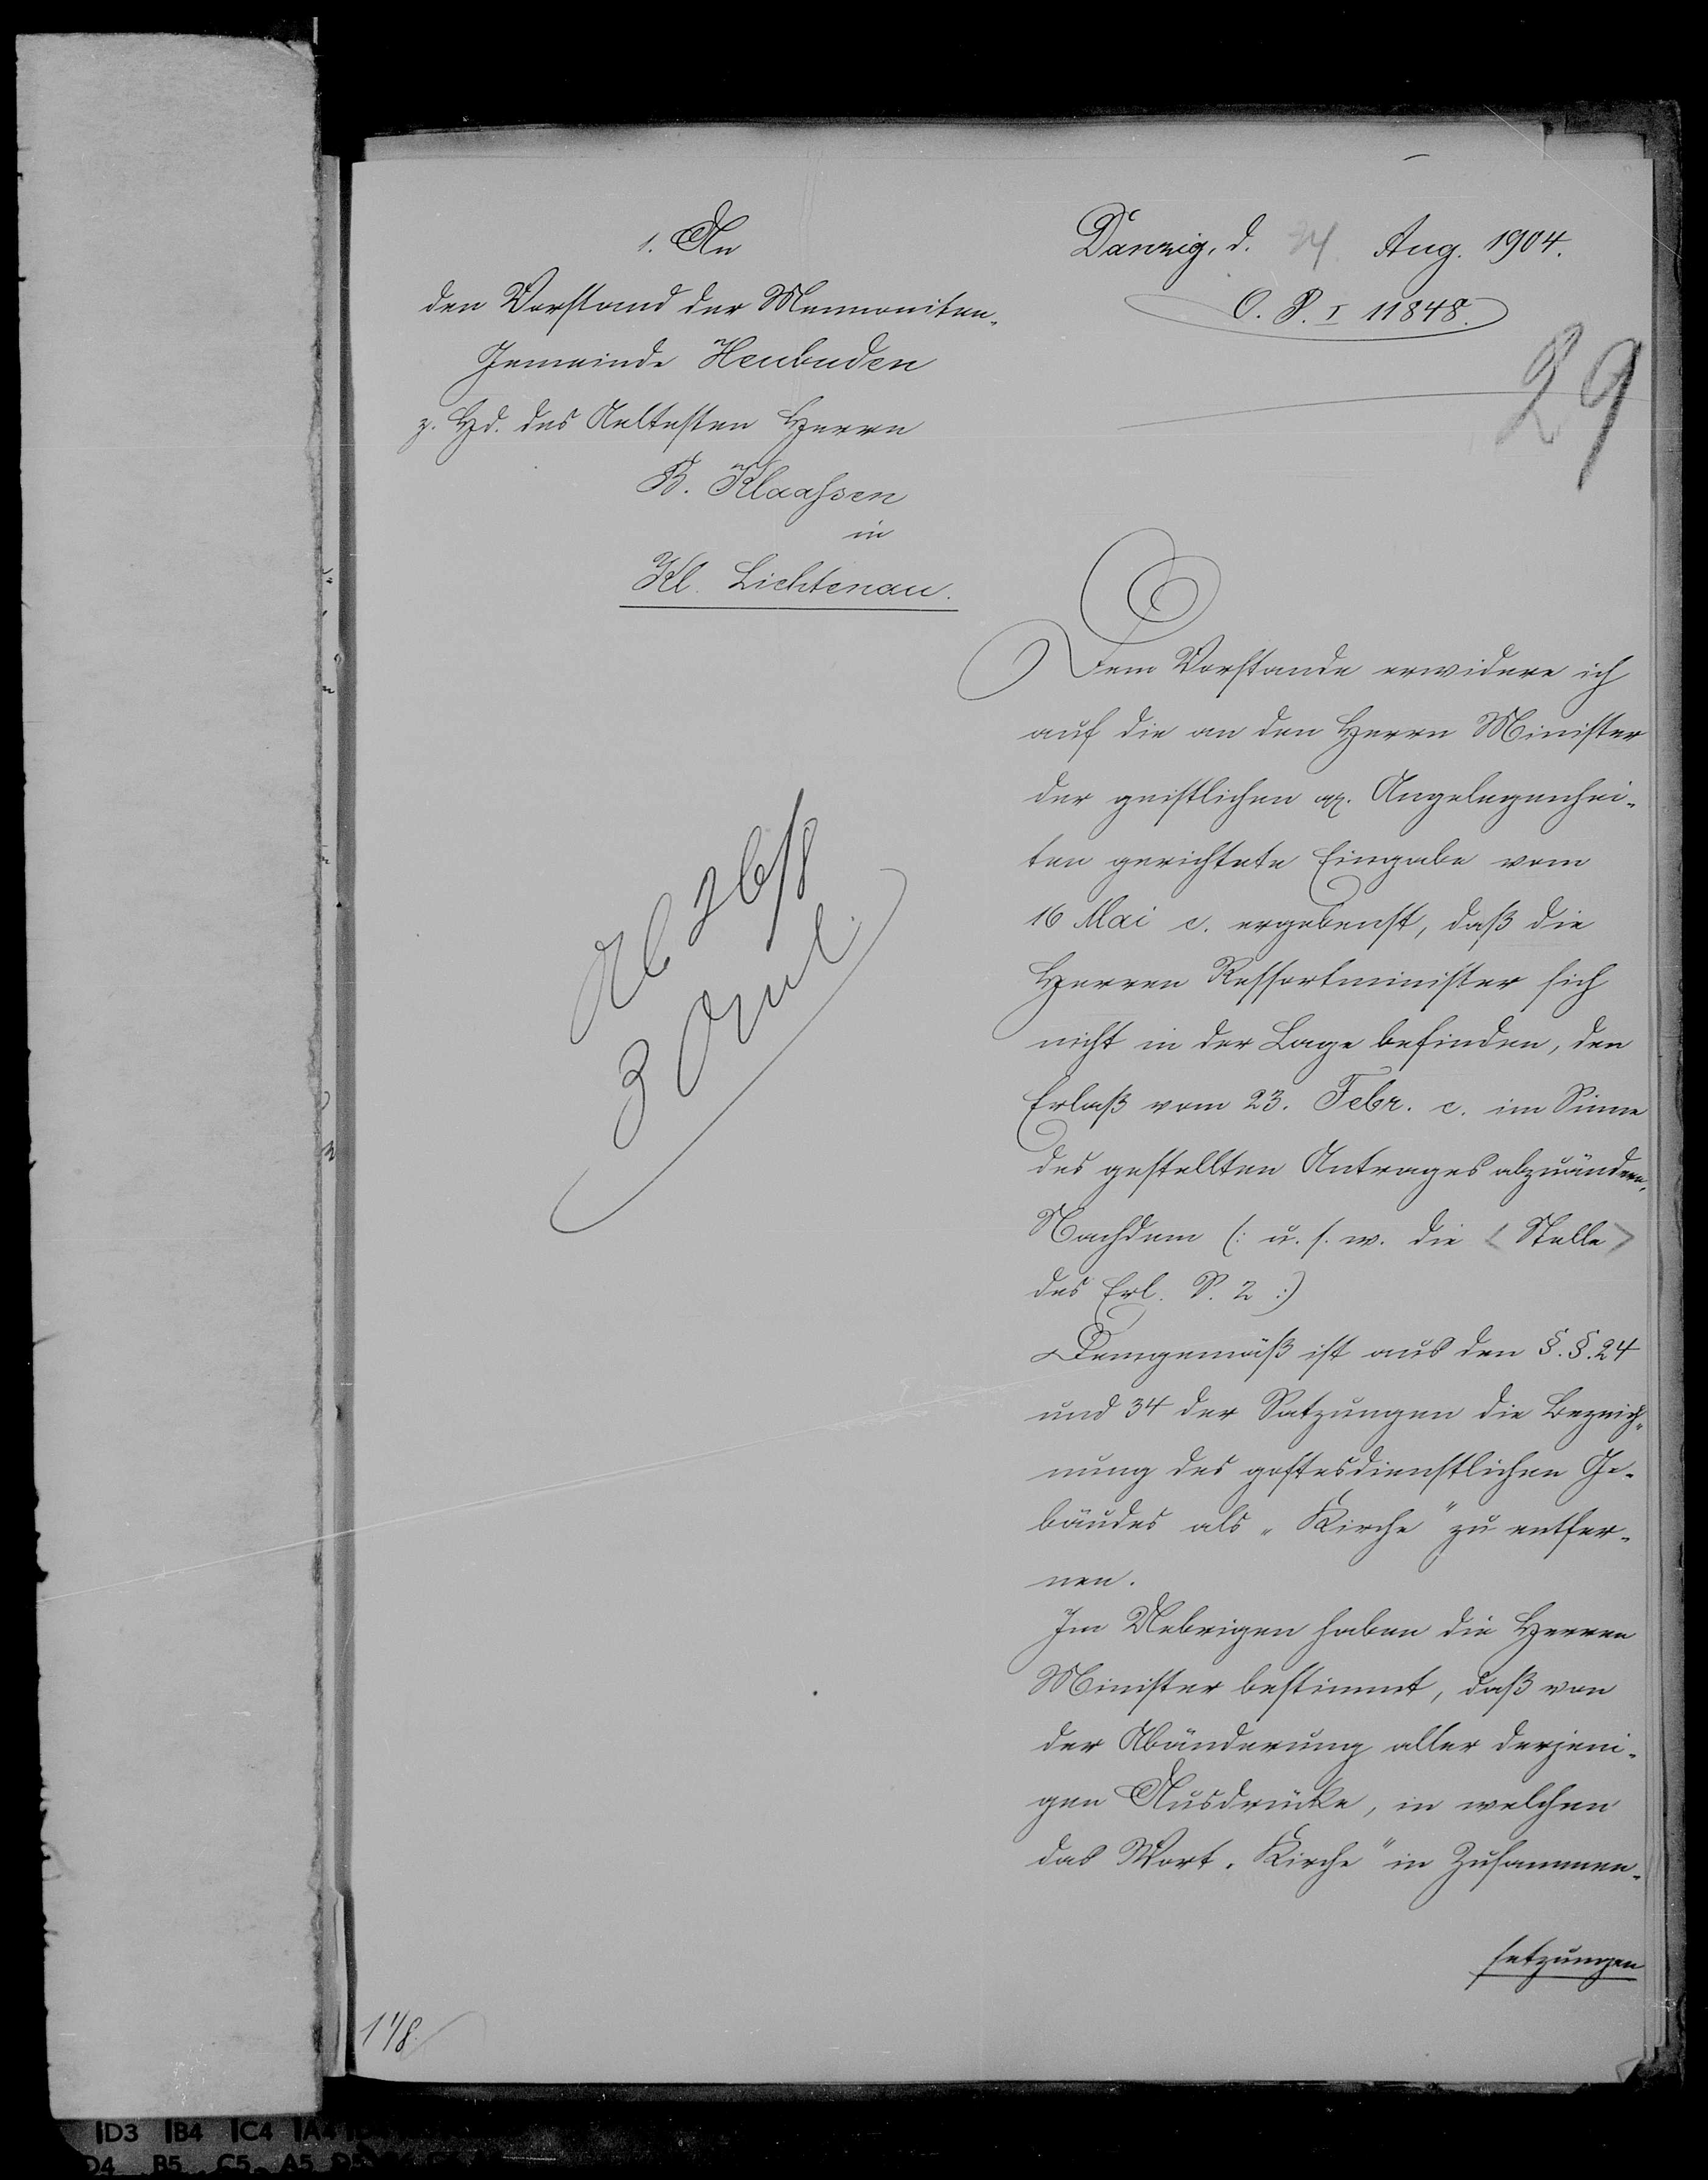 1. An
den Vorstand der Mennoniten-
Gemeinde Heubuden
z. Hd. des Aeltesten Herrn
B. Klaassen
in
Kl. Lichtenau.
Danzig, d. 24 Aug. 1904.
O. P. I 11848.
29
Dem Vorstande erwidere ich
auf die an den Herrn Minister
der geistlichen pp. Angelegenhei-
ten gerichtete Eingabe vom
16 Mai c. ergebenst, daß die
Herren Ressortminister sich
nicht in der Lage befinden, den
Erlaß vom 23. Febr. c. im Sinne
des gestellten Antrages abzuändern.
Nachdem (: u. s. w. die < Stelle >
des Erl. S. 2 :)
Demgemäß ist aus den §.§. 24
und 34 der Satzungen die Bezeich-
nung des gottesdienstlichen Ge-
bäudes als „Kirche" zu entfer-
nen.
Im Uebrigen haben die Herren
Minister bestimmt, daß von
der Abänderung aller derjeni-
gen Ausdrücke, in welchen
das Wort „Kirche" in Zusammen-
setzungen
Ab 26/8
3
11/8
D3 B4 C4 A4
D4 B5 C5 A5 D5